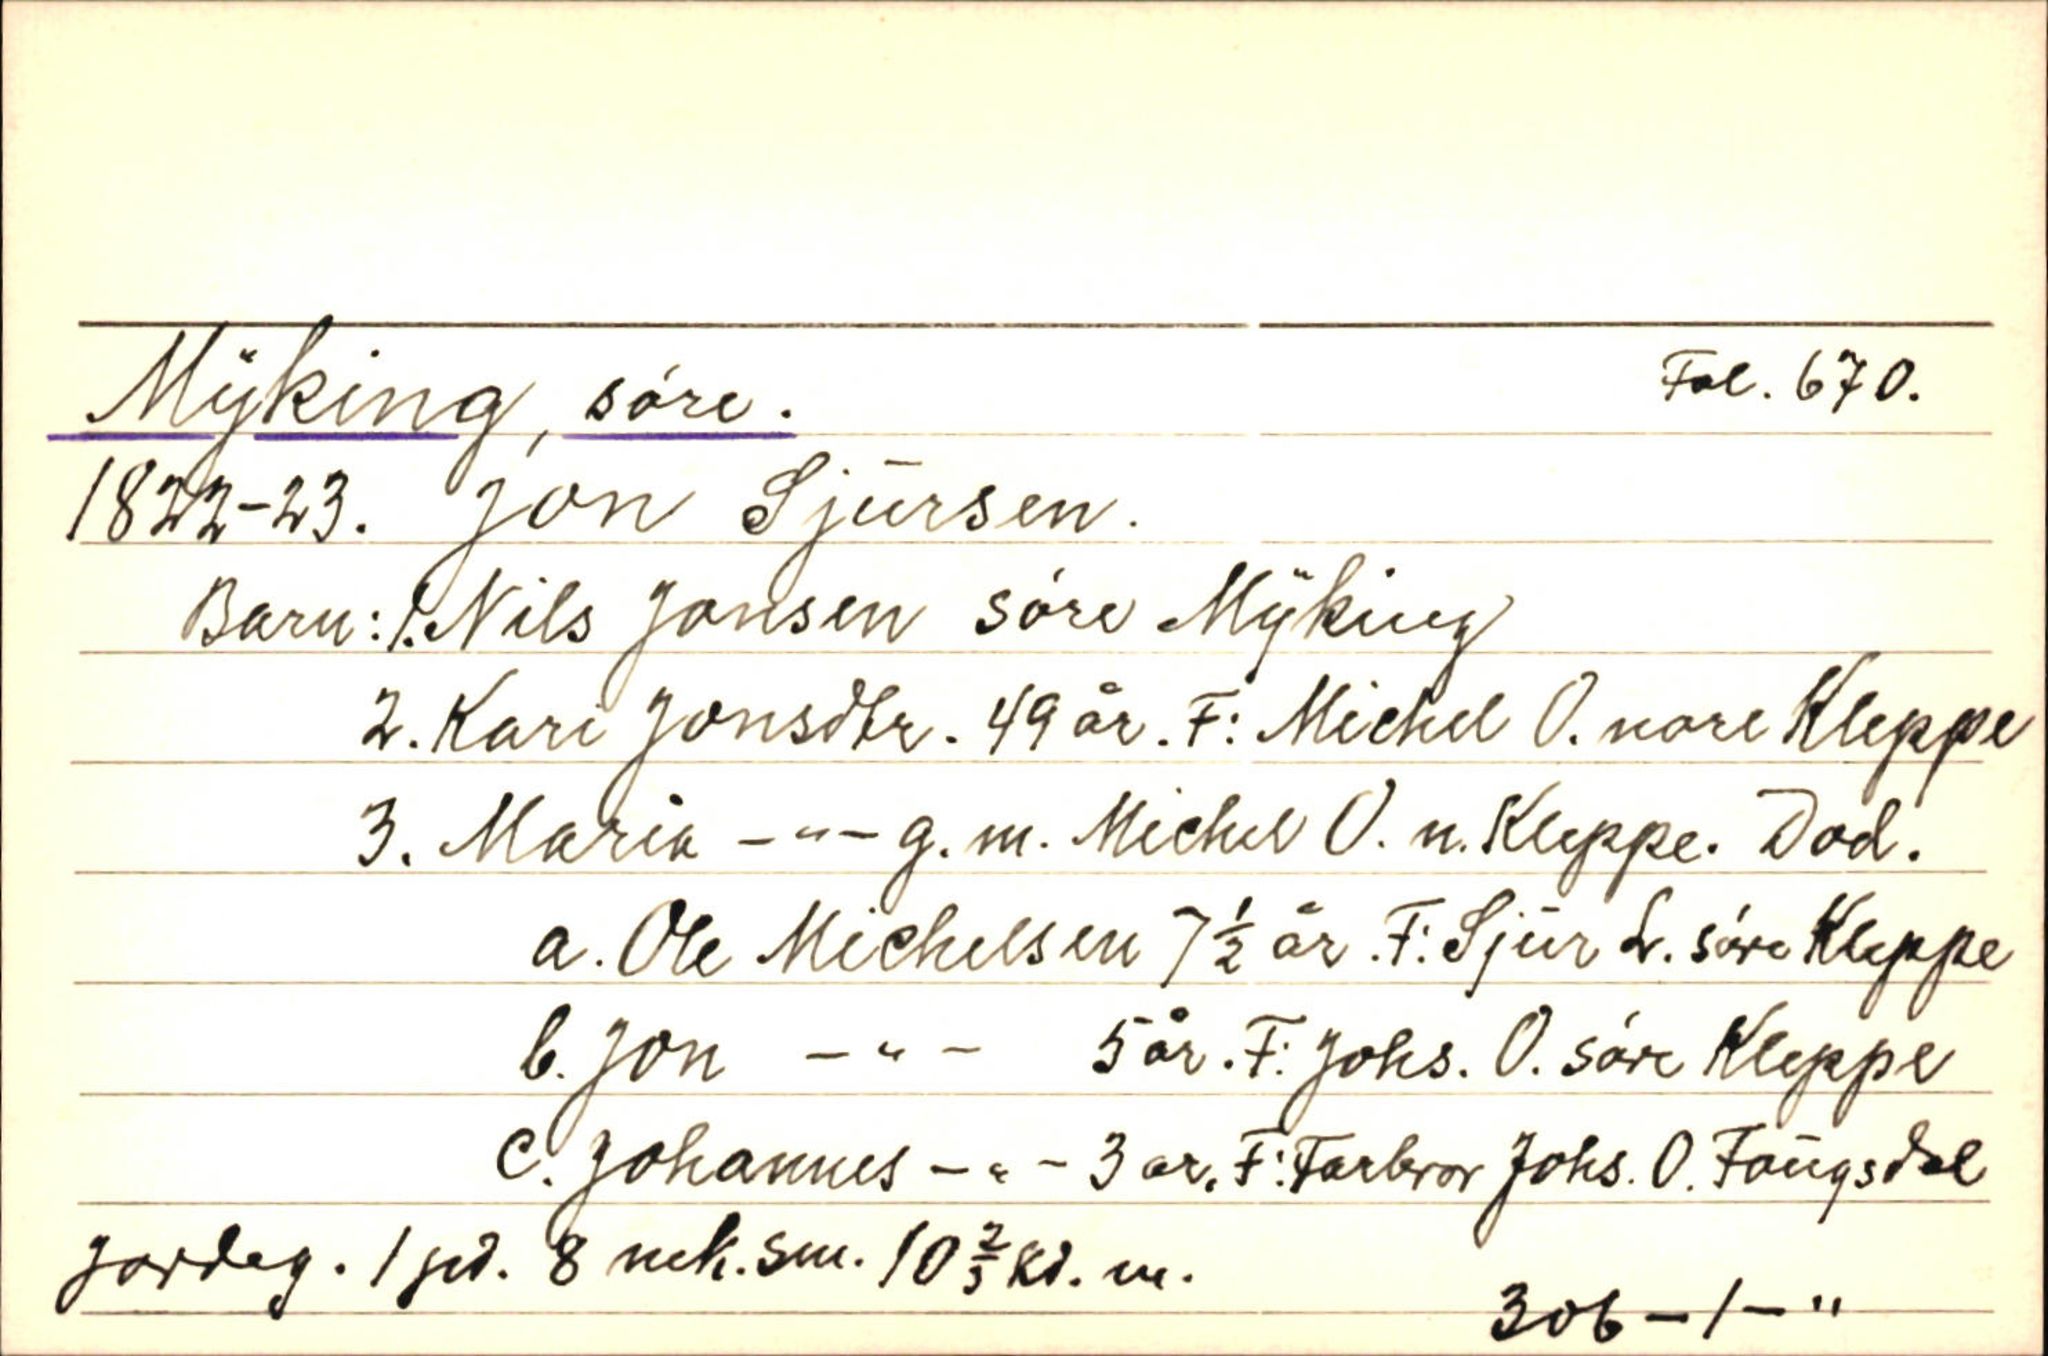 Mÿking, söre. Fol. 670.
1822-23. Jon Sjursen.
Barn: 1. Nils Jonsen söre Mÿking
2. Kari Jonsdtr. 49 år. F: Michel O. nore Kleppe
3. Maria -"- g. m. Michel O. n. Kleppe. Död.
a. Ole Michelsen 7½ år. F: Sjur L. söre Kleppe
b. Jon -"- 5 år. F: Johs. O. söre Kleppe
c. Johannes -"- 3 ar. F: Farbror Johs. O. Fougsdal
Jordeg. 1 pd. 8 mk. sm. 10 2/3 kd. m.
306-1-"